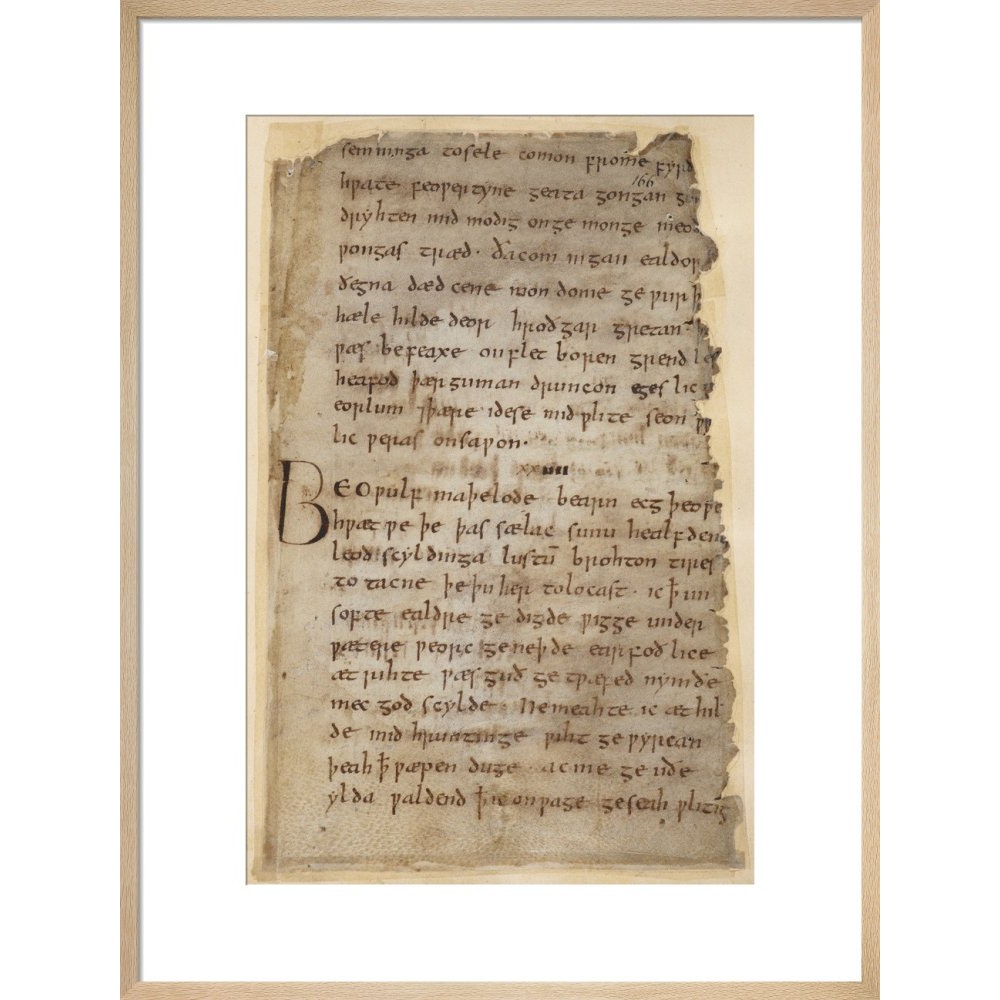 semninga tosele comon frome fyrd
166
hƿate feoƿertyne geata gongan gu
dryhten mid modig onge monge meodo
ƿongas træd · ðacom ingan ealdor
ðegna dæd cene mon dome ge ƿurþ
hæle hilde deor hroðgar gretan
ƿæs be feaxe onflet boren grend les
heafod þær guman druncon egeslic
eorlum ⁊þære idese mid ƿlite seon
lic ƿeras onsaƿon ·
xxiiii
BEOǷulf maþelode bearn ecg þeoƿe
hƿæt ƿe þe þas sælac sunu healfden
leod scyldinga lustū brohton tires
to tacne þe þu her tolocast · ic ꝥ un
softe ealdre ge digde ƿigge under
ƿætere ƿeorc geneþde earfoðlice
æt rihte ƿæs guð ge tƿæfed nymðe
mec god scylde · Ne meahte ic æt hil
de mid hruntinge ƿiht ge ƿyrcan
þeah ꝥ ƿæpen duge · ac me ge uðe
ylda ƿaldend ꝥ ic on ƿage geseah ƿlitig